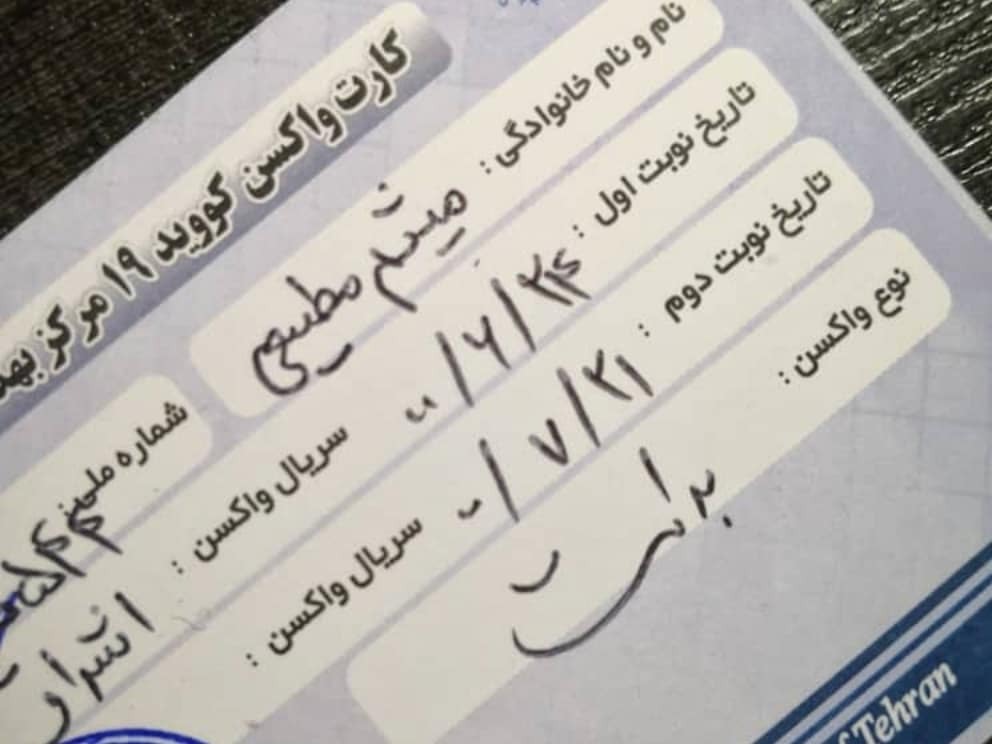 کارت واکسن کووید ۱۹ مرکز بهد
نام و نام خانوادگی : میثم مطیعی
شماره ملی:
تاریخ نوبت اول : ۰۰/۶/۲۴
سریال واکسن :
تاریخ نوبت دوم : ۰۰/۷/۲۱
سریال واکسن :
نوع واکسن : برکت
Tehran